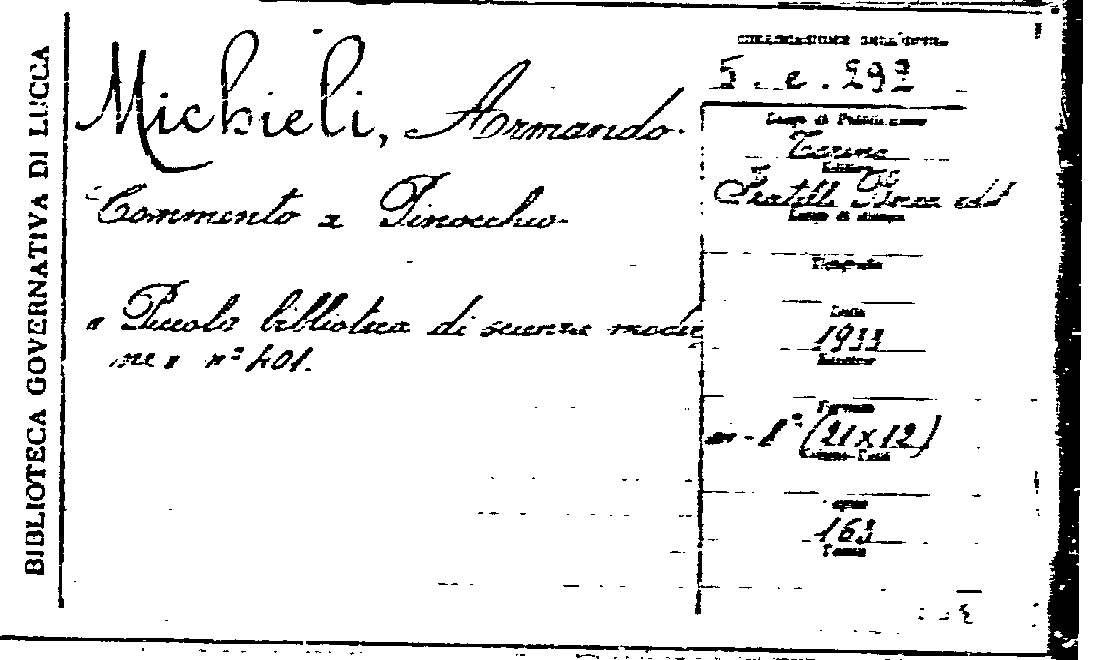 BIBLIOTECA GOVERNATIVA DI LUCCA
Michieli, Armando.
Commento a Pinocchio
« Piccola biblioteca di scienze moder
ne » n° 401.
COLLOCAZIONE DELL'OPERA
5. e. 292
Luogo di Pubblicazione
Torino
Editore
Fratelli Bocca edit
Luogo di stampa
Tipografia
Data
1933
Formato
in-8° (21x12)
Pagine
163